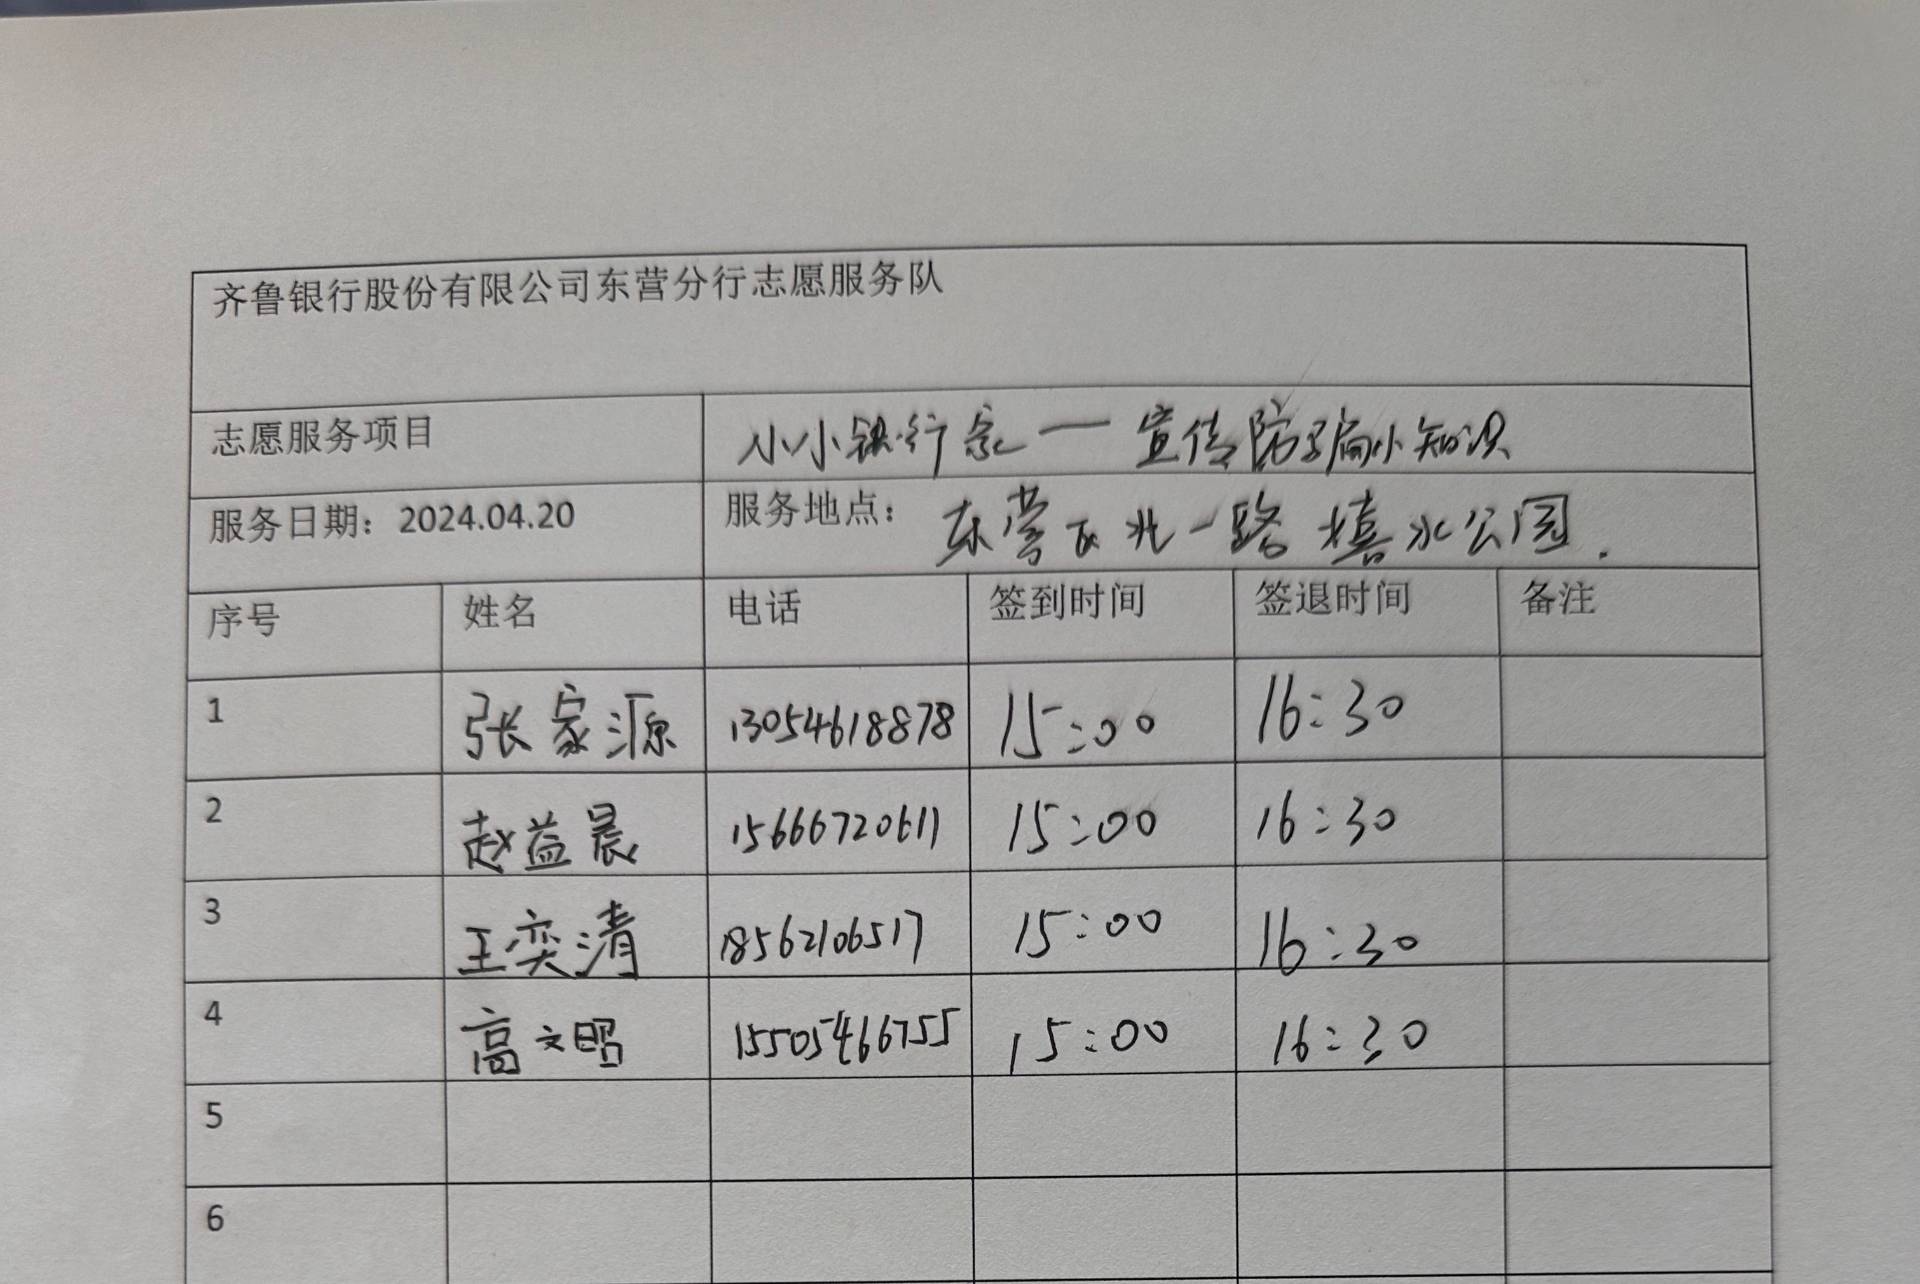 齐鲁银行股份有限公司东营分行志愿服务队
志愿服务项目 小小银行家一宣传防骗小知识
服务日期：2024.04.20 服务地点：东营区北一路 水公园.
序号 姓名 电话 签到时间 签退时间 备注
1 张家源 13054618878 15:00 16:30
2 赵益晨 15666720611 15:00 16:30
3 王奕清 18562106517 15:00 16:30
4 高文昭 15505466755 15:00 16:30
5
6